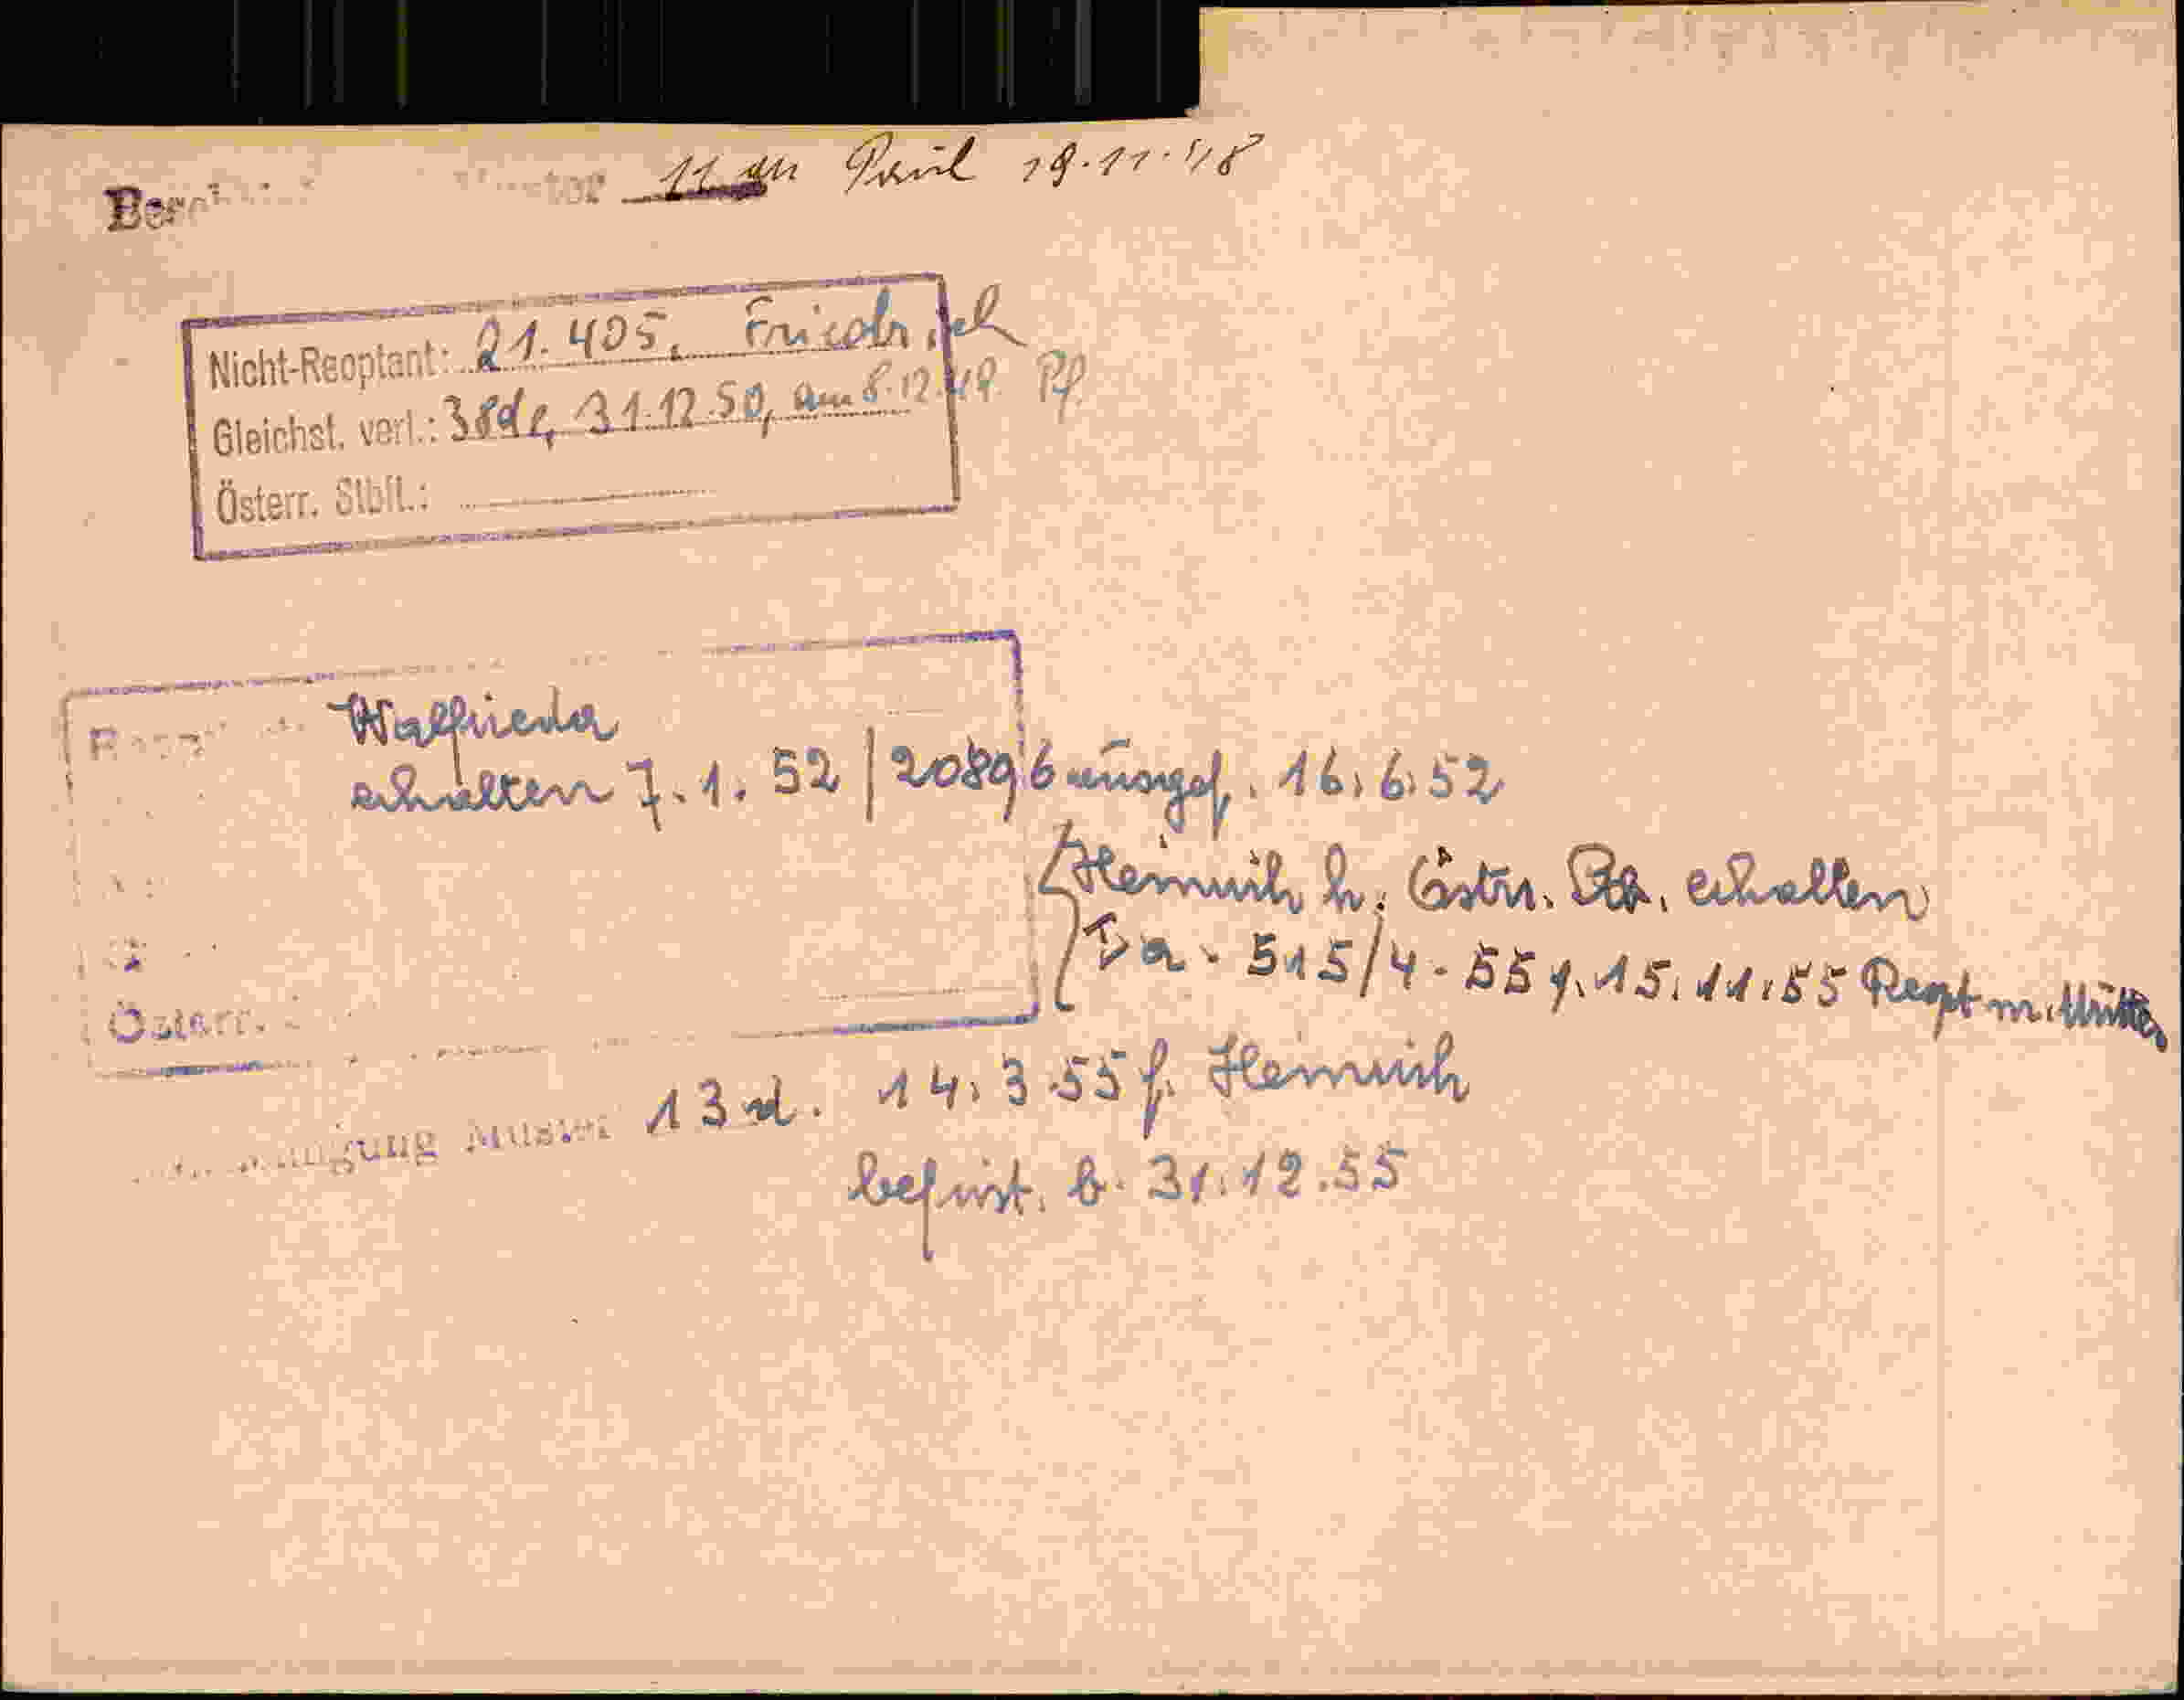 11 an Paul 19.11.48
Nicht-Reoptant: 21.405, Friedrich
Gleichst. verl.: 31.12.50, am 8.12.49 Pf.
Österr. Stbft.:
Walfrieda
erhalten 7.1.52 | 20896 ausgef. 16.6.52
Heinrich h. Östr. erhalten
Ia - 515/4 - 55 v. 15.11.55 Reopt m. Mutter
Österr.
13 d. 14.3.55 f. Heinrich
befrist. b. 31.12.55